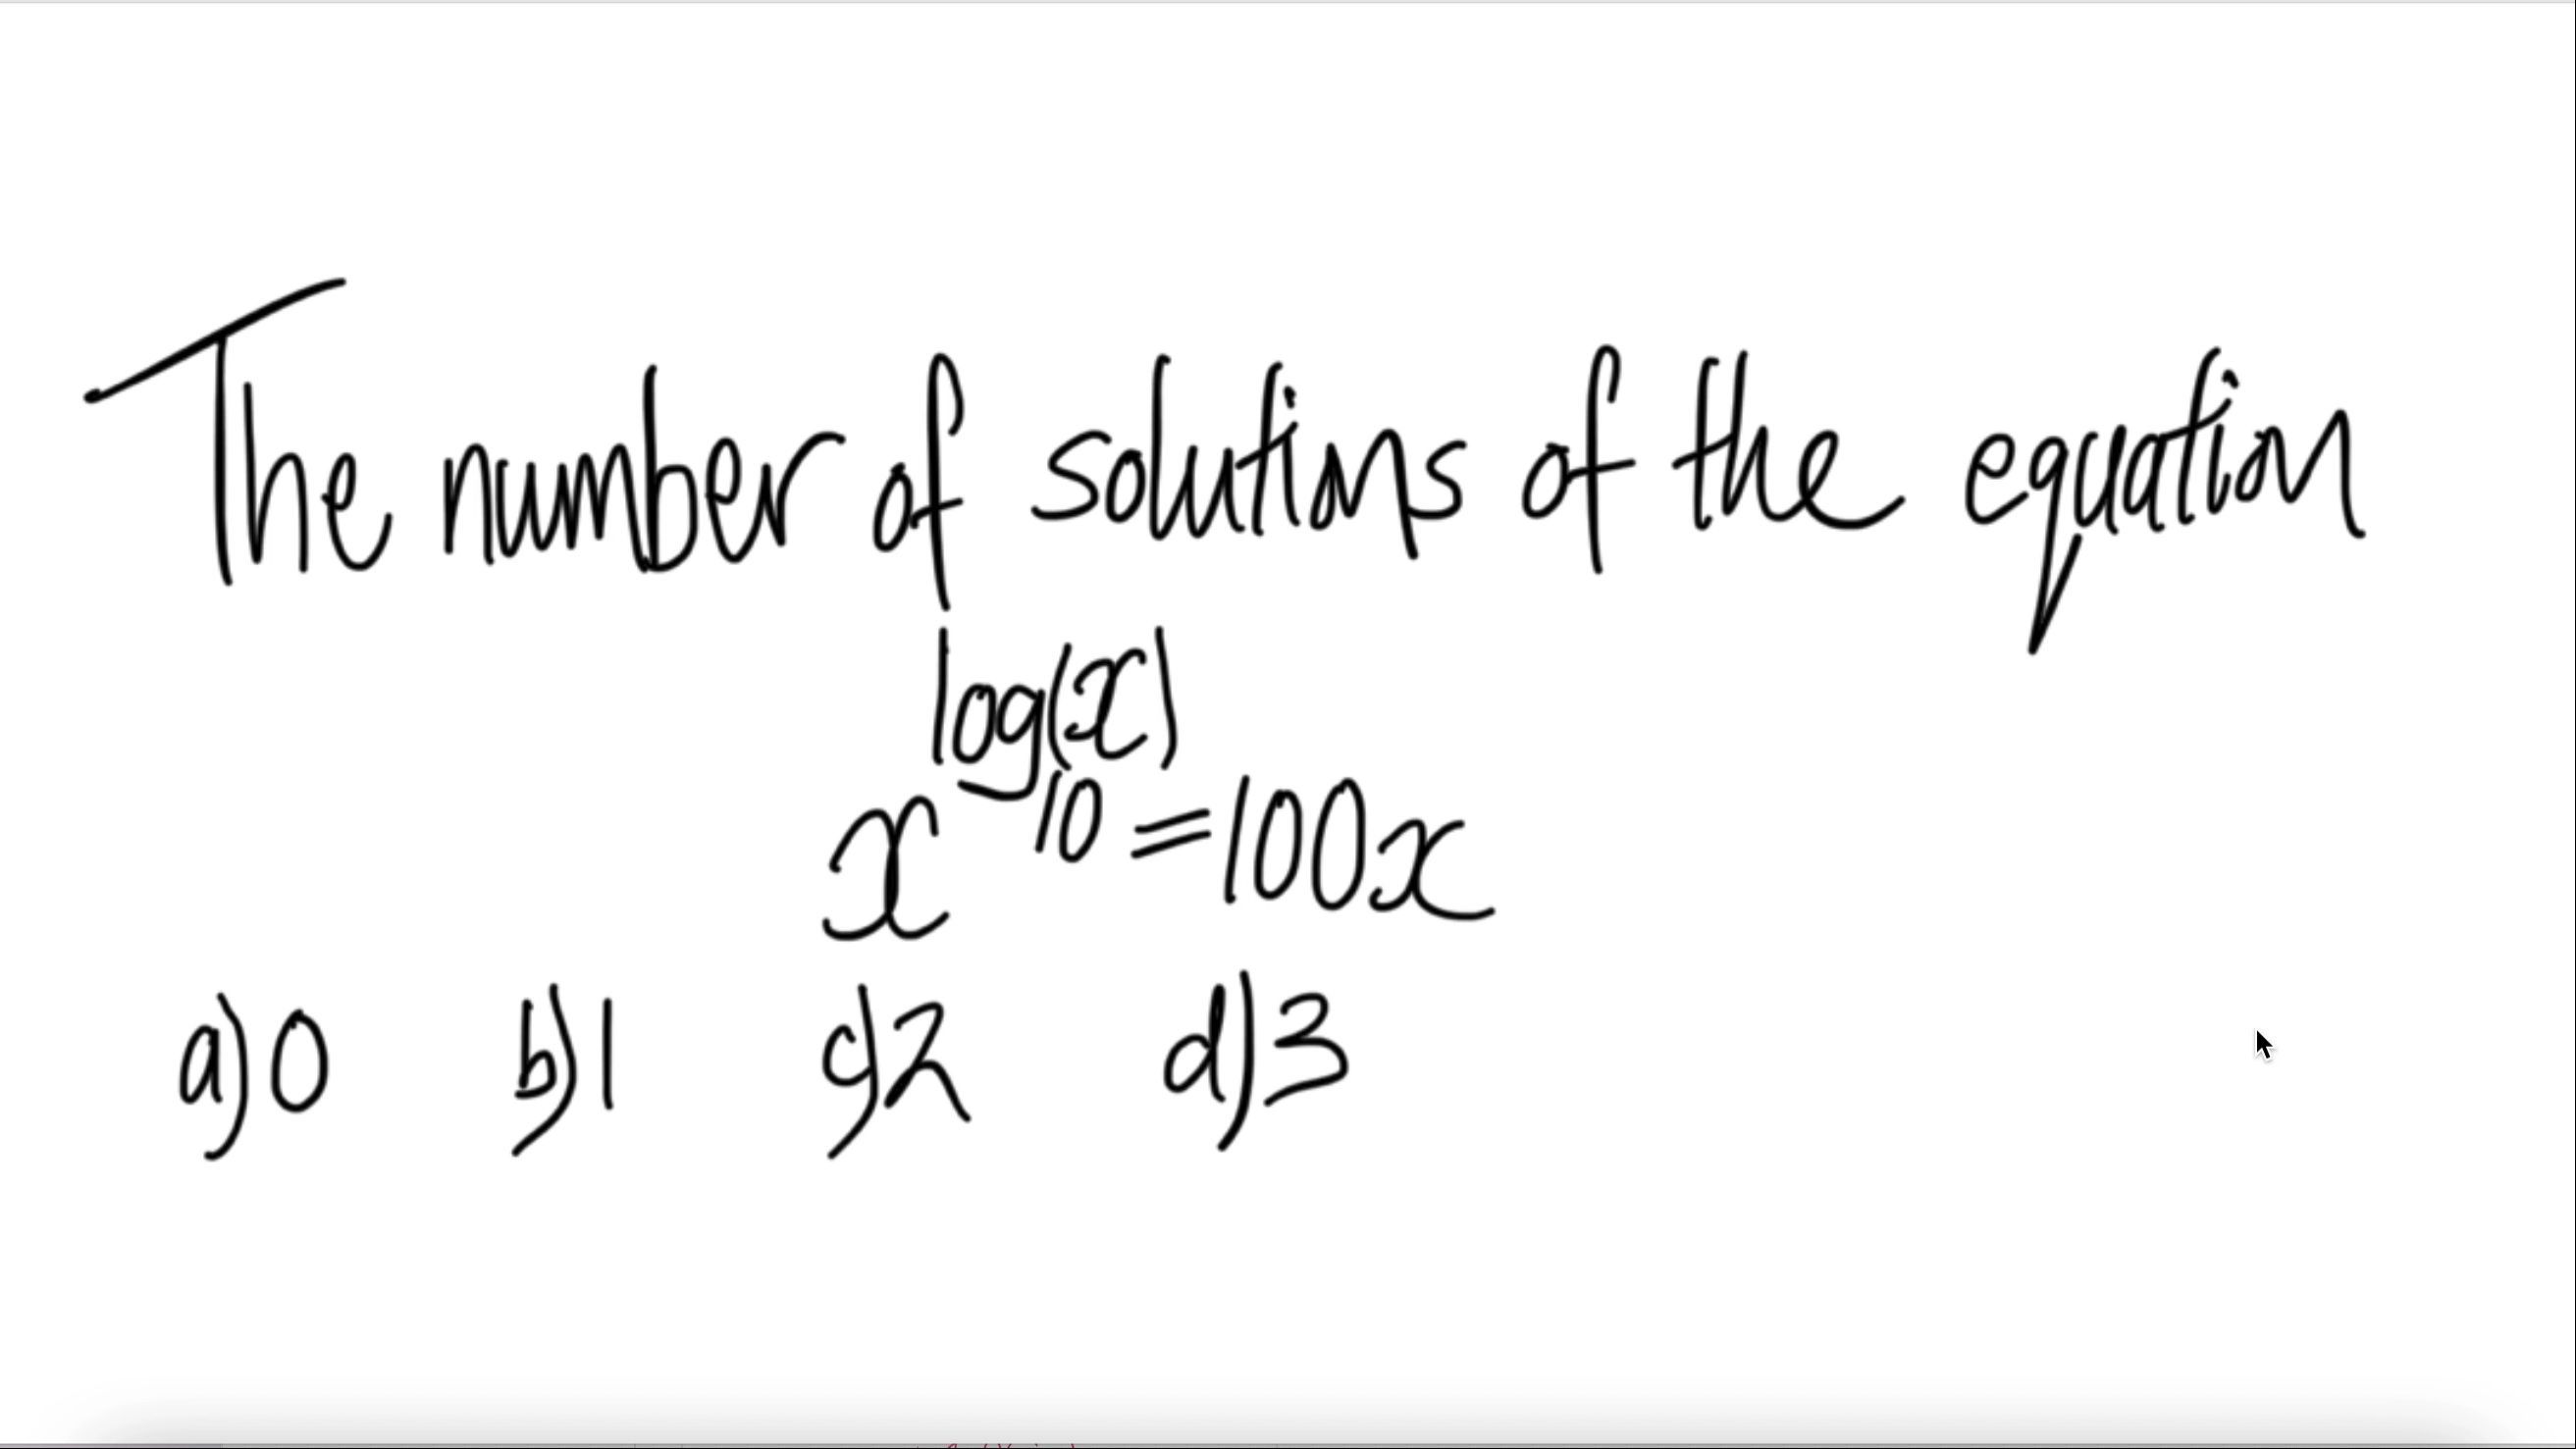 The number of solutions of the equation
x^log_10(x) = 100x
a) 0 b) 1 c) 2 d) 3